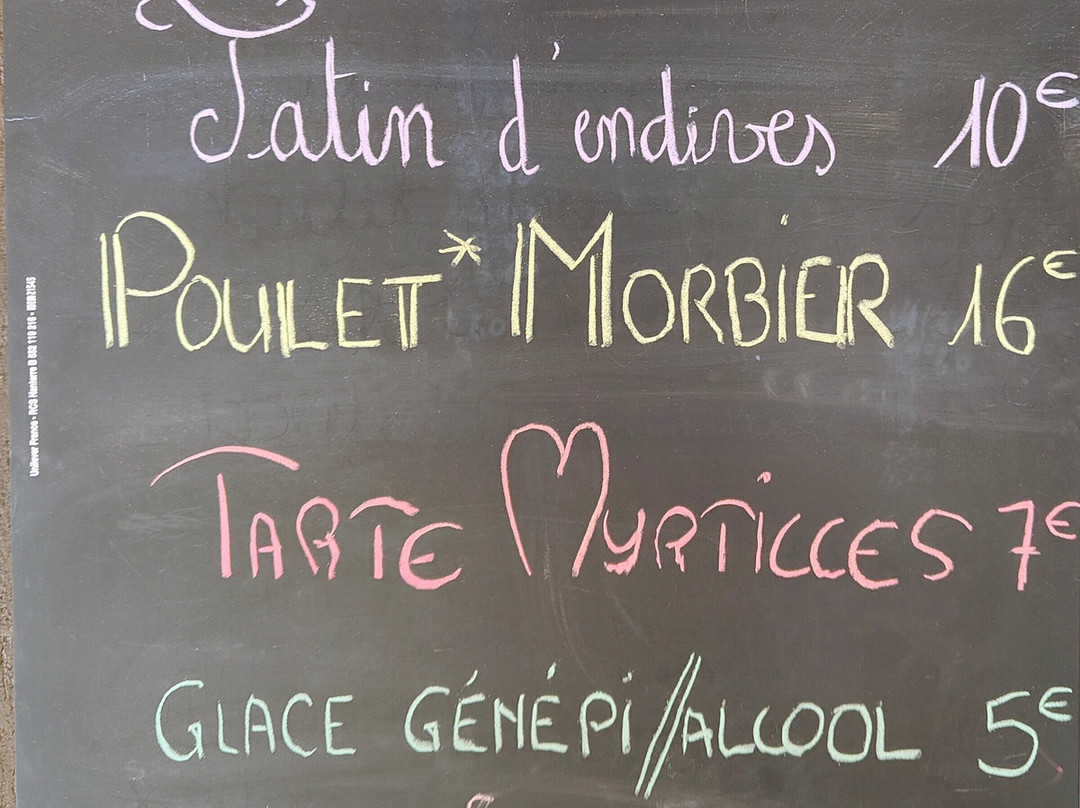 Tatin d'endives 10€
POULET* MORBIER 16€
TARTE MYRTILLES 7€
GLACE GÉNÉPI//ALCOOL 5€
Unilever France - RCS Nanterre B 552 119 216 -